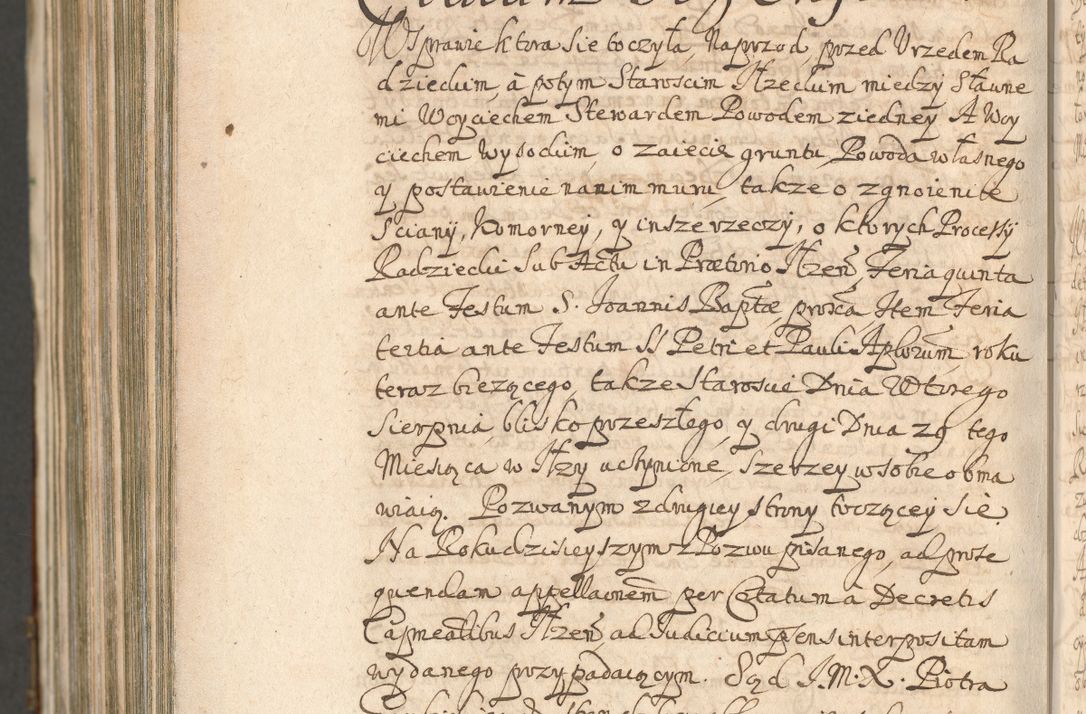 W sprawie ktora sie toczyła, Naprzod, przed Urzedem Ra
dzieckim, à potym Staroscim Iłzeckim miedzy Sławne
mi Woyciechem Stewardem Powodem ziedney A Woy
ciechem Wysockim, o zaiecię gruntu, Powoda własnego
y postawienie nanim muru, takze o zgnoienie
Sciany, Komorney, y insze rzeczy, o ktorych Processy
Radziecki Sub Actu in Prætorio Iłzeń, Feria quinta
ante Festum S. Joannis Baptæ, Item Feria
tertia ante Festum SS Petri et Pauli Aplorum, roku
teraz biezącego, takze Starosci Dnia Wtorego
Sierpnia, blisko przeszłego, y drugi Dnia 29 tego
Miesiąca w Iłzy uczynione, szerzey w sobie obma
wiaią. Pozwanym z drugiey strony toczącey się
Na Roku dzisieyszym z Pozwu pisanego, ad prose
quendam appellaonem per Citatum a Decretis
Iłzeń, ad Judicium pens interpositam
wydanego przypadaiącym. Sąd J.M.X. Piotra